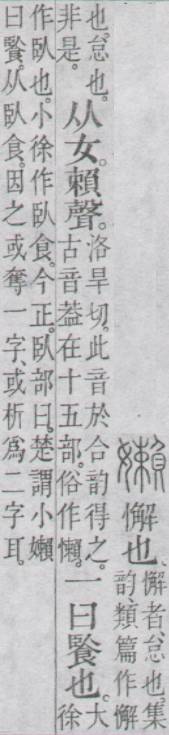 嬾懈也、
懈者、怠也。集
韵、類篇作懈
也、怠也。
非是。
从女。賴聲。
洛旱切。此音於合韵得之。
古音葢在十五部。俗作懶。
一曰䬳也。
大
徐
作臥也。小徐作臥食。今正。臥部曰。楚謂小嬾
曰䬳。从臥食。因之或奪一字、或析爲二字耳。